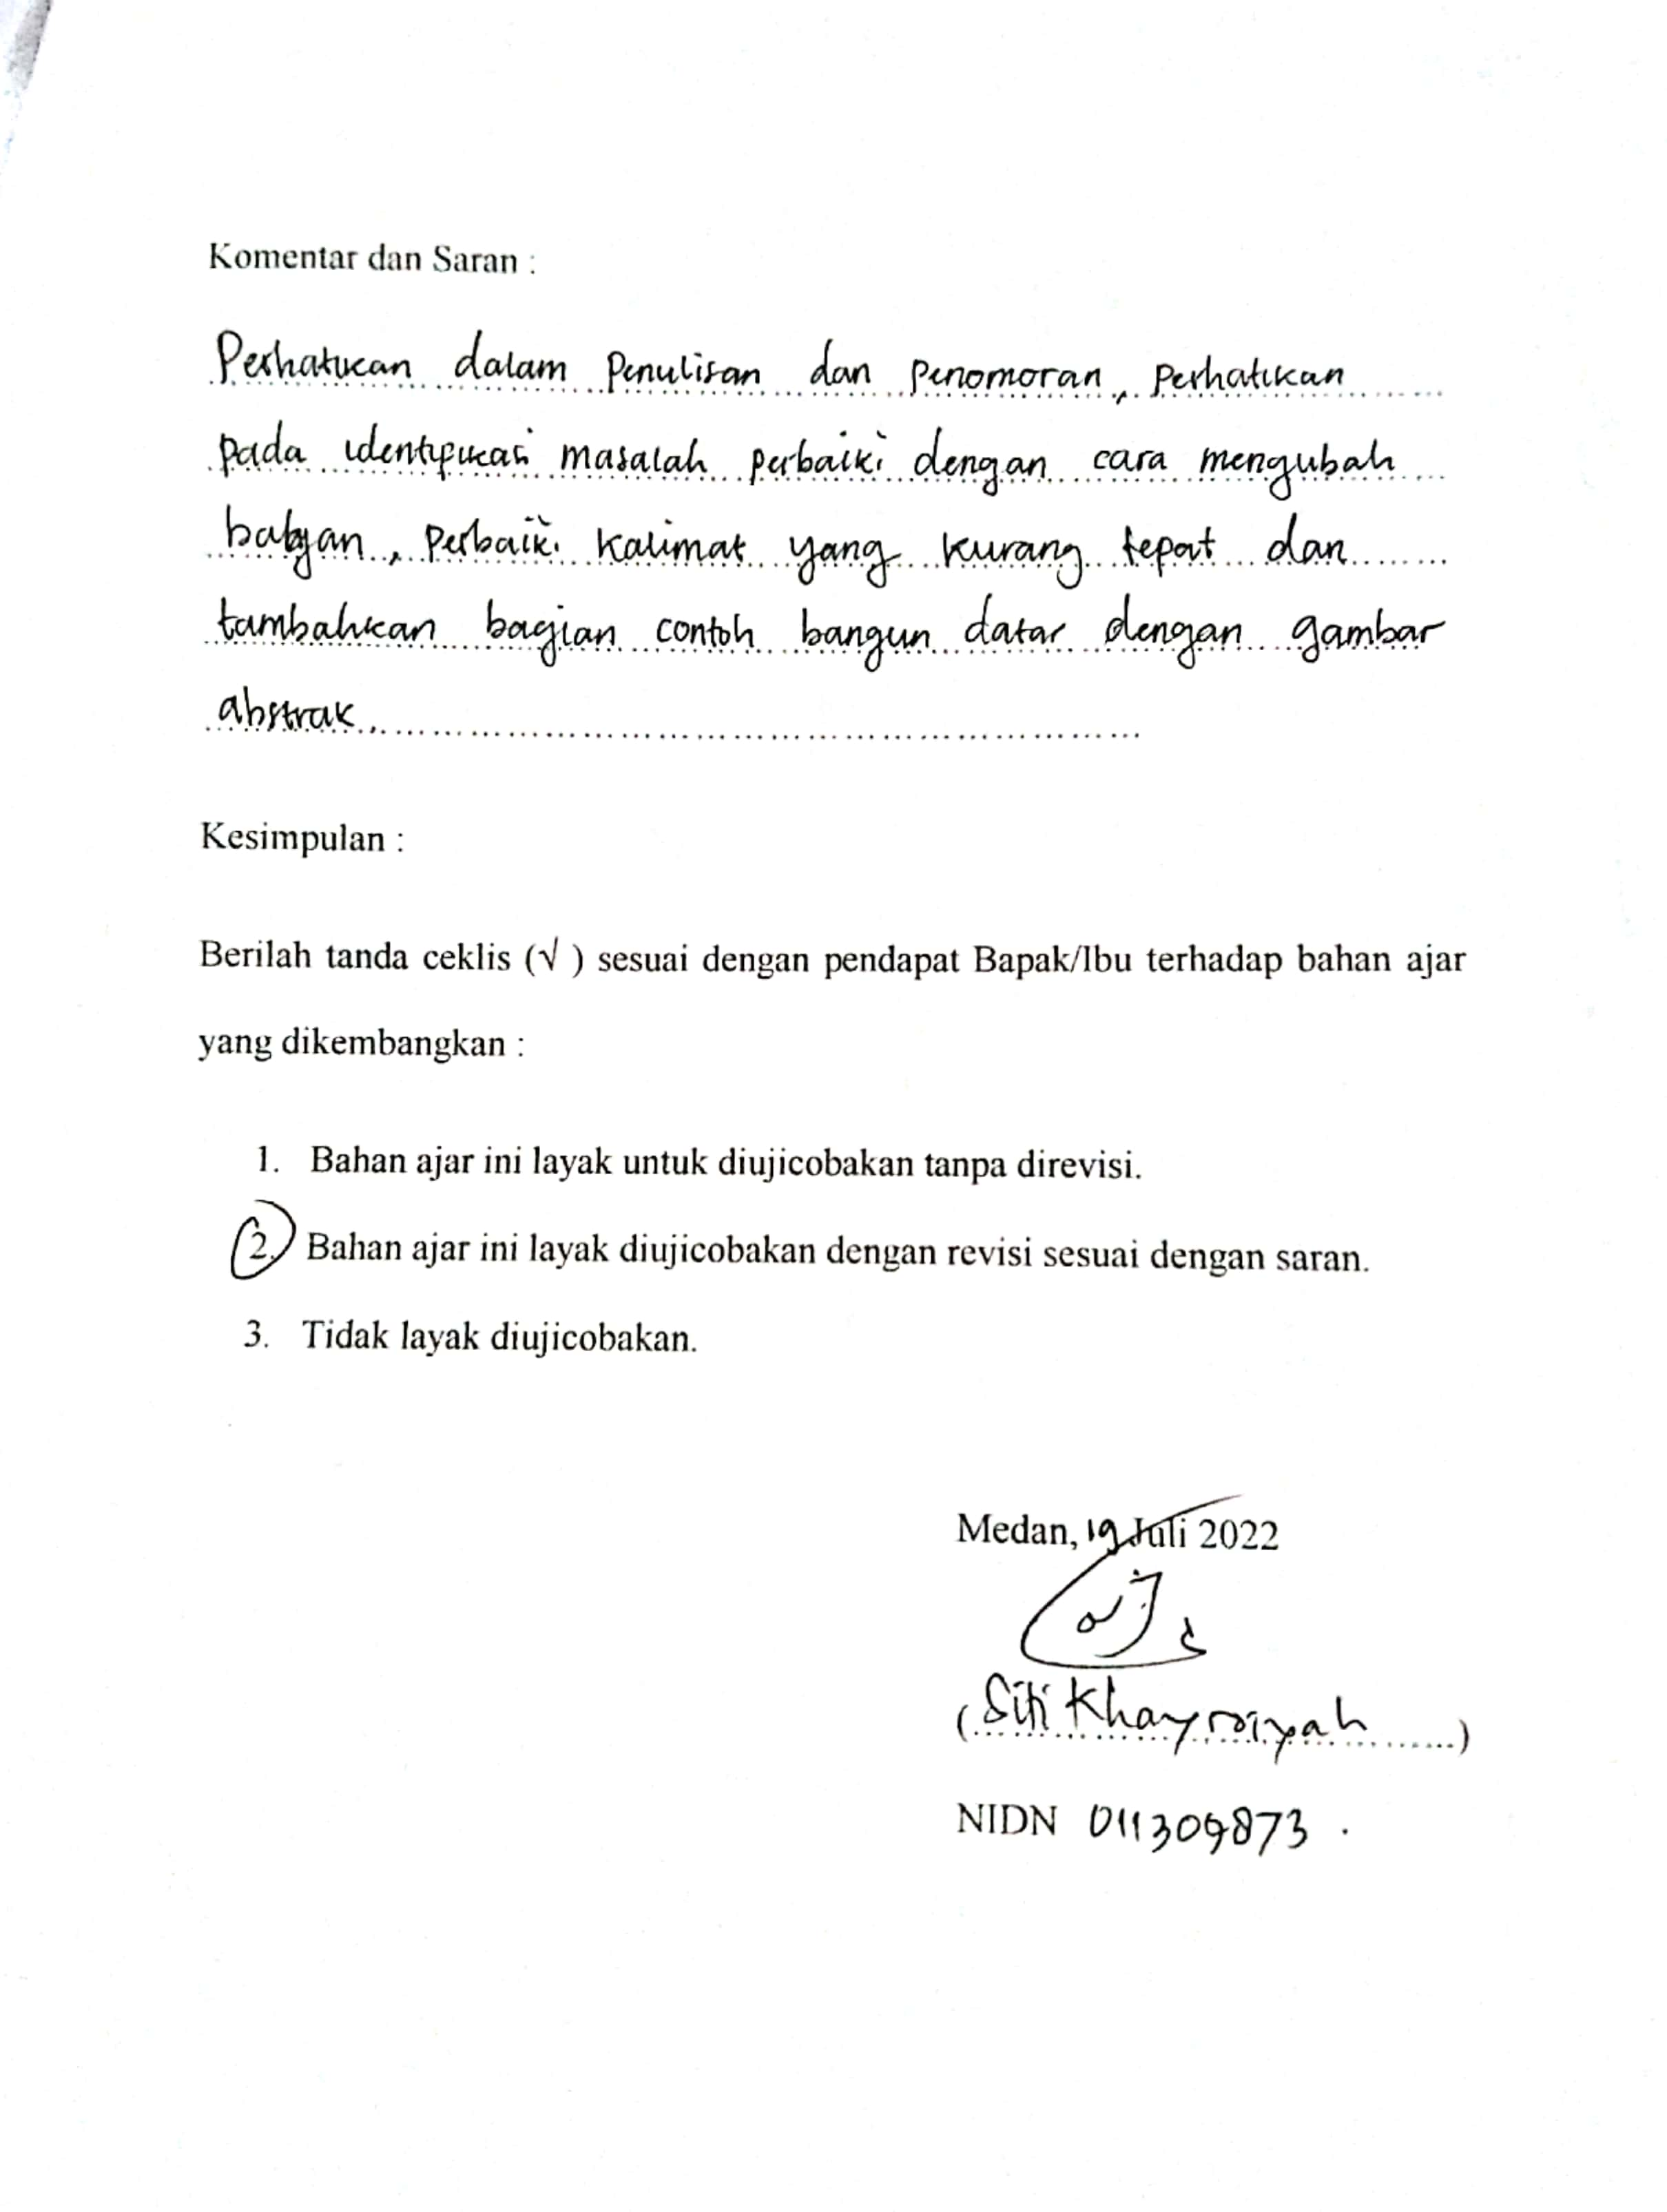 Komentar dan Saran :
Perhatikan dalam Penulisan dan penomoran, perhatikan
pada identifikasi masalah perbaiki dengan cara mengubah
bagian, perbaiki kalimat yang kurang tepat dan
tambahkan bagian contoh bangun datar dengan gambar
abstrak.
Kesimpulan :
Berilah tanda ceklis (√ ) sesuai dengan pendapat Bapak/Ibu terhadap bahan ajar
yang dikembangkan :
1. Bahan ajar ini layak untuk diujicobakan tanpa direvisi.
2. Bahan ajar ini layak diujicobakan dengan revisi sesuai dengan saran.
3. Tidak layak diujicobakan.
Medan, 19 Juli 2022
(Siti Khayroiyah)
NIDN 011309873 .